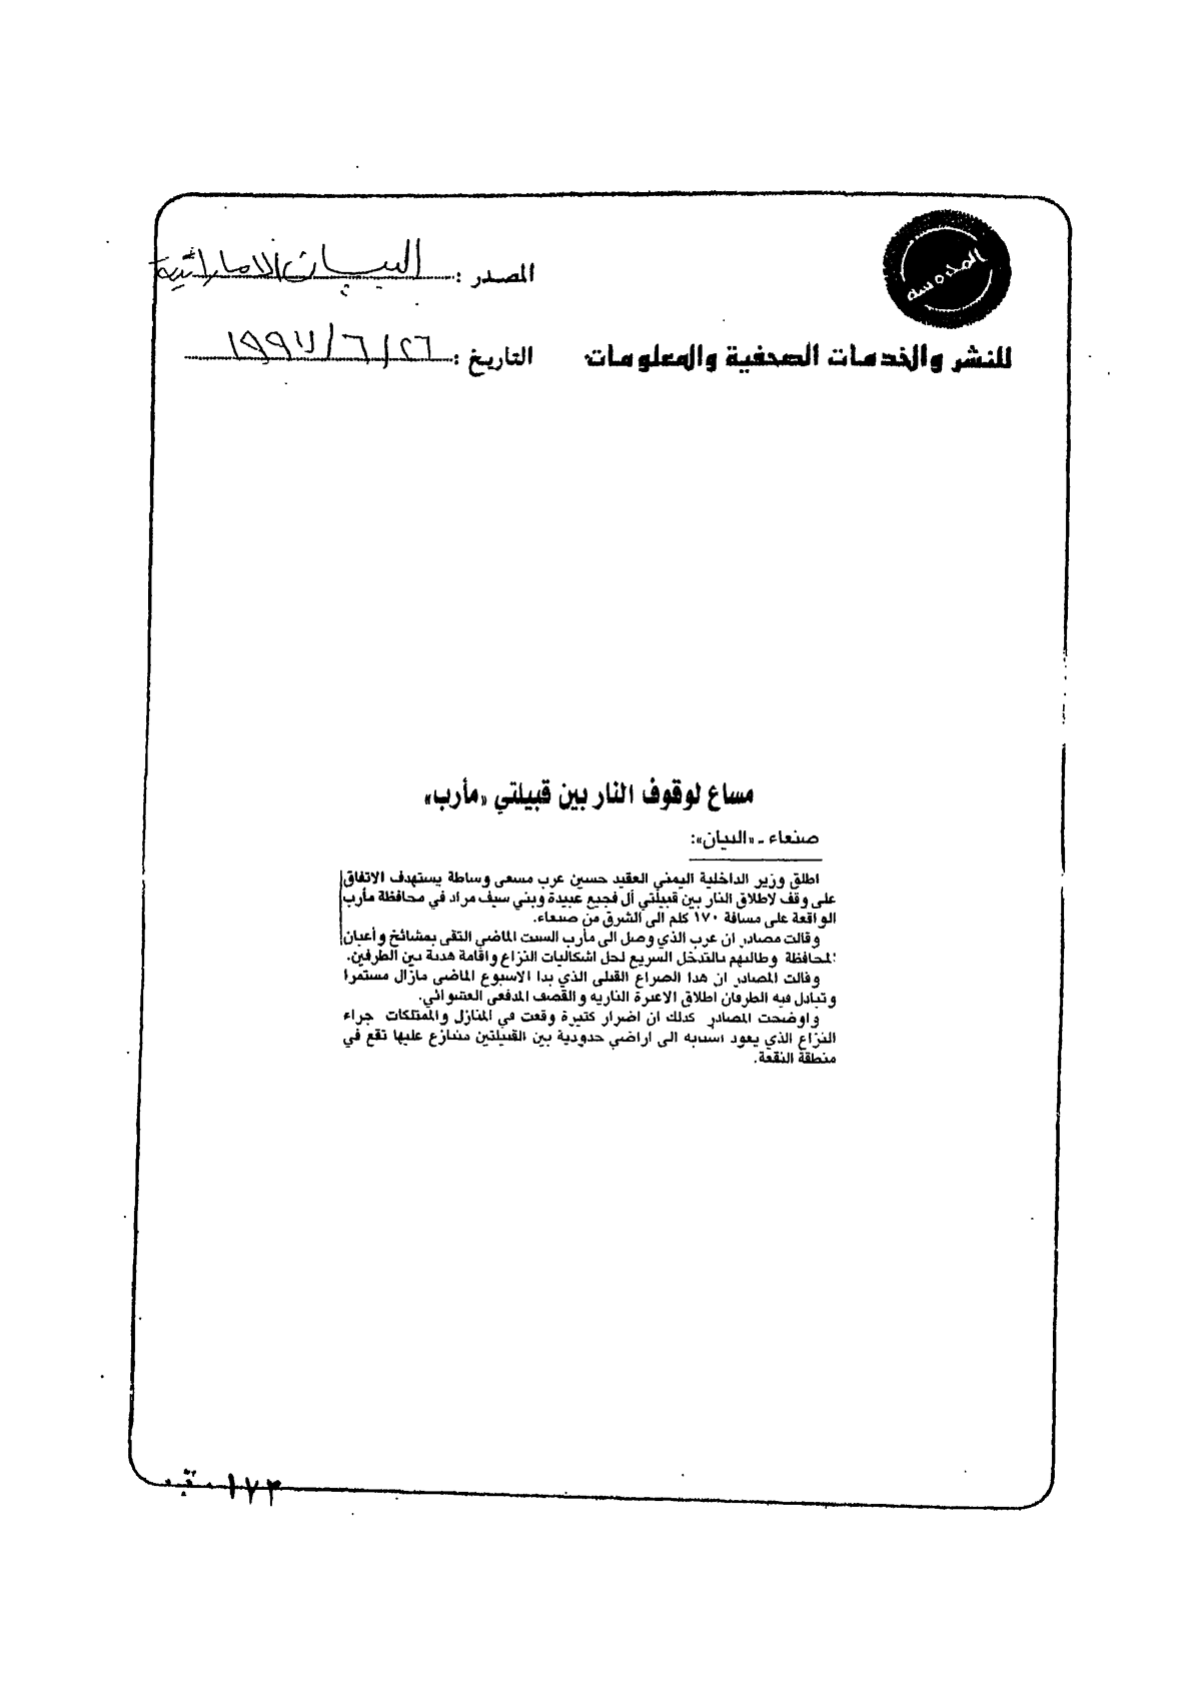 المصدر : البيان الاماراتية
للنشر والخدمات الصحفية والمعلومات
التاريخ : ٢٦ / ٦ / ١٩٩٧
مساع لوقوف النار بين قبيلتي «مأرب»
صنعاء - «البيان»:
اطلق وزير الداخلية اليمني العقيد حسين عرب مسعى وساطة يستهدف الاتفاق
على وقف لاطلاق النار بين قبيلتي آل فجيع عبيدة وبني سيف مراد في محافظة مأرب
الواقعة على مسافة ١٧٠ كلم الى الشرق من صنعاء.
وقالت مصادر ان عرب الذي وصل الى مأرب السبت الماضي التقى بمشائخ وأعيان
المحافظة وطالبهم بالتدخل السريع لحل اشكاليات النزاع واقامة هدنة بين الطرفين.
وقالت المصادر ان هذا الصراع القبلي الذي بدا الاسبوع الماضي مازال مستمرا
وتبادل فيه الطرفان اطلاق الاعيرة النارية والقصف المدفعي العشوائي.
واوضحت المصادر كذلك ان اضرار كثيرة وقعت في المنازل والممتلكات جراء
النزاع الذي يعود اسبابه الى اراضي حدودية بين القبيلتين متنازع عليها تقع في
منطقة النقعة.
١٧٣